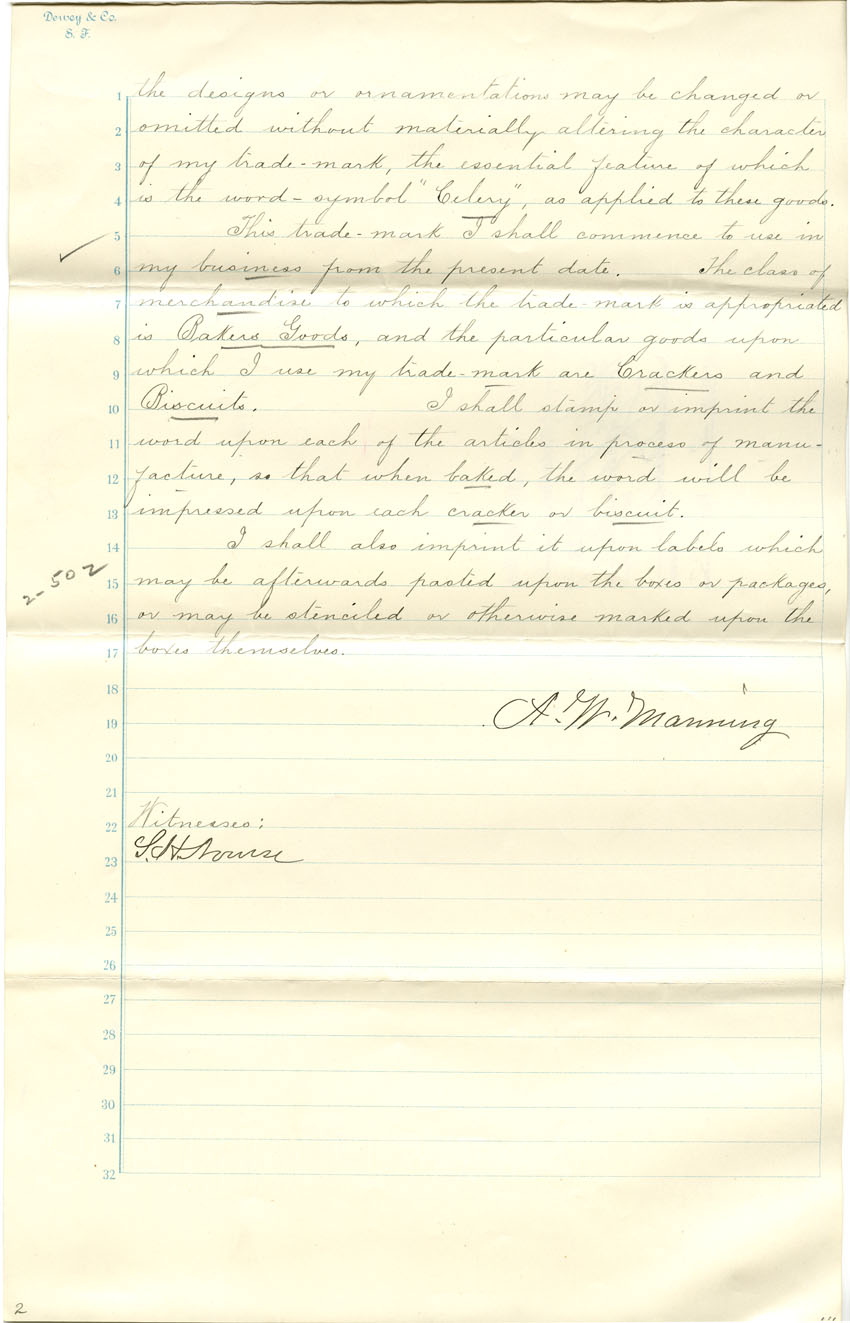 Dewey & Co.
S. F.
1 the designs or ornamentations may be changed or
2 omitted without materially altering the character
3 of my trade-mark, the essential feature of which
4 is the word-symbol "Celery", as applied to these goods.
5 This trade-mark I shall commence to use in
6 my business from the present date. The class of
7 merchandise to which the trade-mark is appropriated
8 is Bakers Goods, and the particular goods upon
9 which I use my trade-mark are Crackers and
10 Biscuits. I shall stamp or imprint the
11 word upon each of the articles in process of manu-
12 facture, so that when baked, the word will be
13 impressed upon each cracker or biscuit.
14 I shall also imprint it upon labels which
2-502
15 may be afterwards pasted upon the boxes or packages,
16 or may be stenciled or otherwise marked upon the
17 boxes themselves.
18
19 A. W. Manning
20
21
22 Witnesses:
23 S. H. Nourse
24
25
26
27
28
29
30
31
32
2